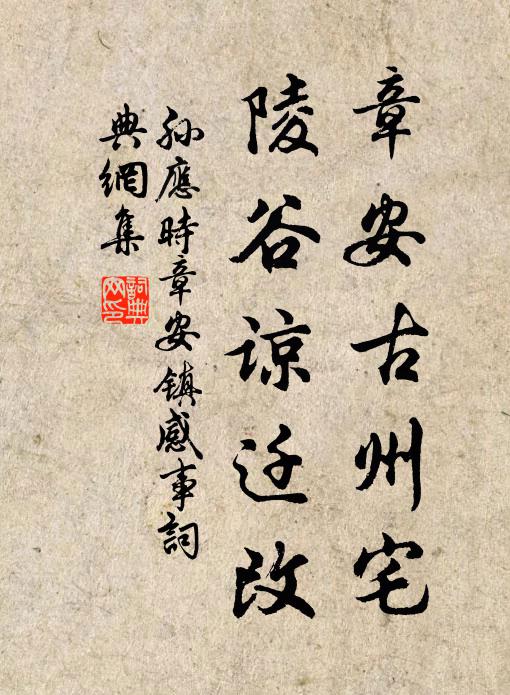 章安古州宅
陵谷谅迁改
孙應時章安镇感事詞
典網集
詞典網印